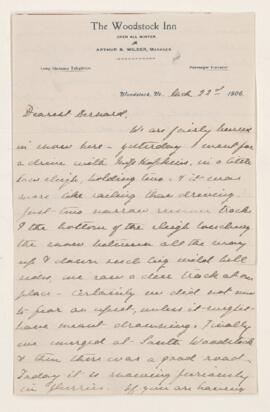 The Woodstock Inn
OPEN ALL WINTER
ARTHUR B. WILDER, MANAGER
Long Distance Telephone
Passenger Elevator
Woodstock, Vt., Mch. 22nd 1906
Dearest Bernard,
We are fairly buried
in snow here - yesterday I went for
a drive with Miss Hopkins, in a little
low sleigh, holding two, & it was
more like sailing than driving.
Just two narrow runner tracks
& the bottom of the sleigh touching
the snow between all the way
up & down such big wild hill
roads, we saw a deer track at one
place - Certainly we did not have
to fear an upset, unless it might
have meant drowning. Finally
we emerged at South Woodstock
& then there was a good road.
Today it is snowing furiously
in flurries. If you are having